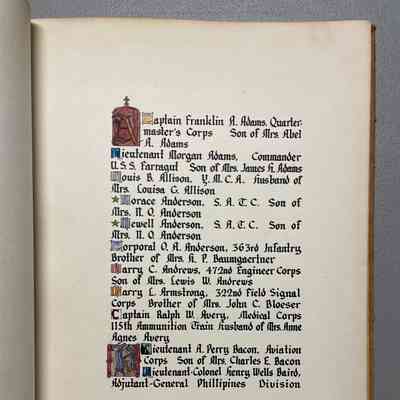 A
Captain Franklin A. Adams, Quarter-
master's Corps Son of Mrs. Abel
A. Adams
Lieutenant Morgan Adams, Commander
U.S.S. Farragut Son of Mrs. James H. Adams
Louis B. Allison, Y.M.C.A. Husband of
Mrs. Louisa G. Allison
Horace Anderson, S.A.T.C. Son of
Mrs. N.O. Anderson
Newell Anderson, S.A.T.C. Son of
Mrs. N.O. Anderson
Corporal O.A. Anderson, 363rd Infantry,
Brother of Mrs. H.P. Baumgaertner
Harry C. Andrews, 472nd Engineer Corps
Son of Mrs. Lewis W. Andrews
Harry L. Armstrong, 322nd Field Signal
Corps Brother of Mrs. John C. Bloeser
Captain Ralph W. Avery, Medical Corps
115th Ammunition Train Husband of Mrs. Anne
Agnes Avery
B
Lieutenant A. Perry Bacon, Aviation
Corps Son of Mrs. Charles E. Bacon
Lieutenant-Colonel Henry Wells Baird,
Adjutant-General Phillipines Division